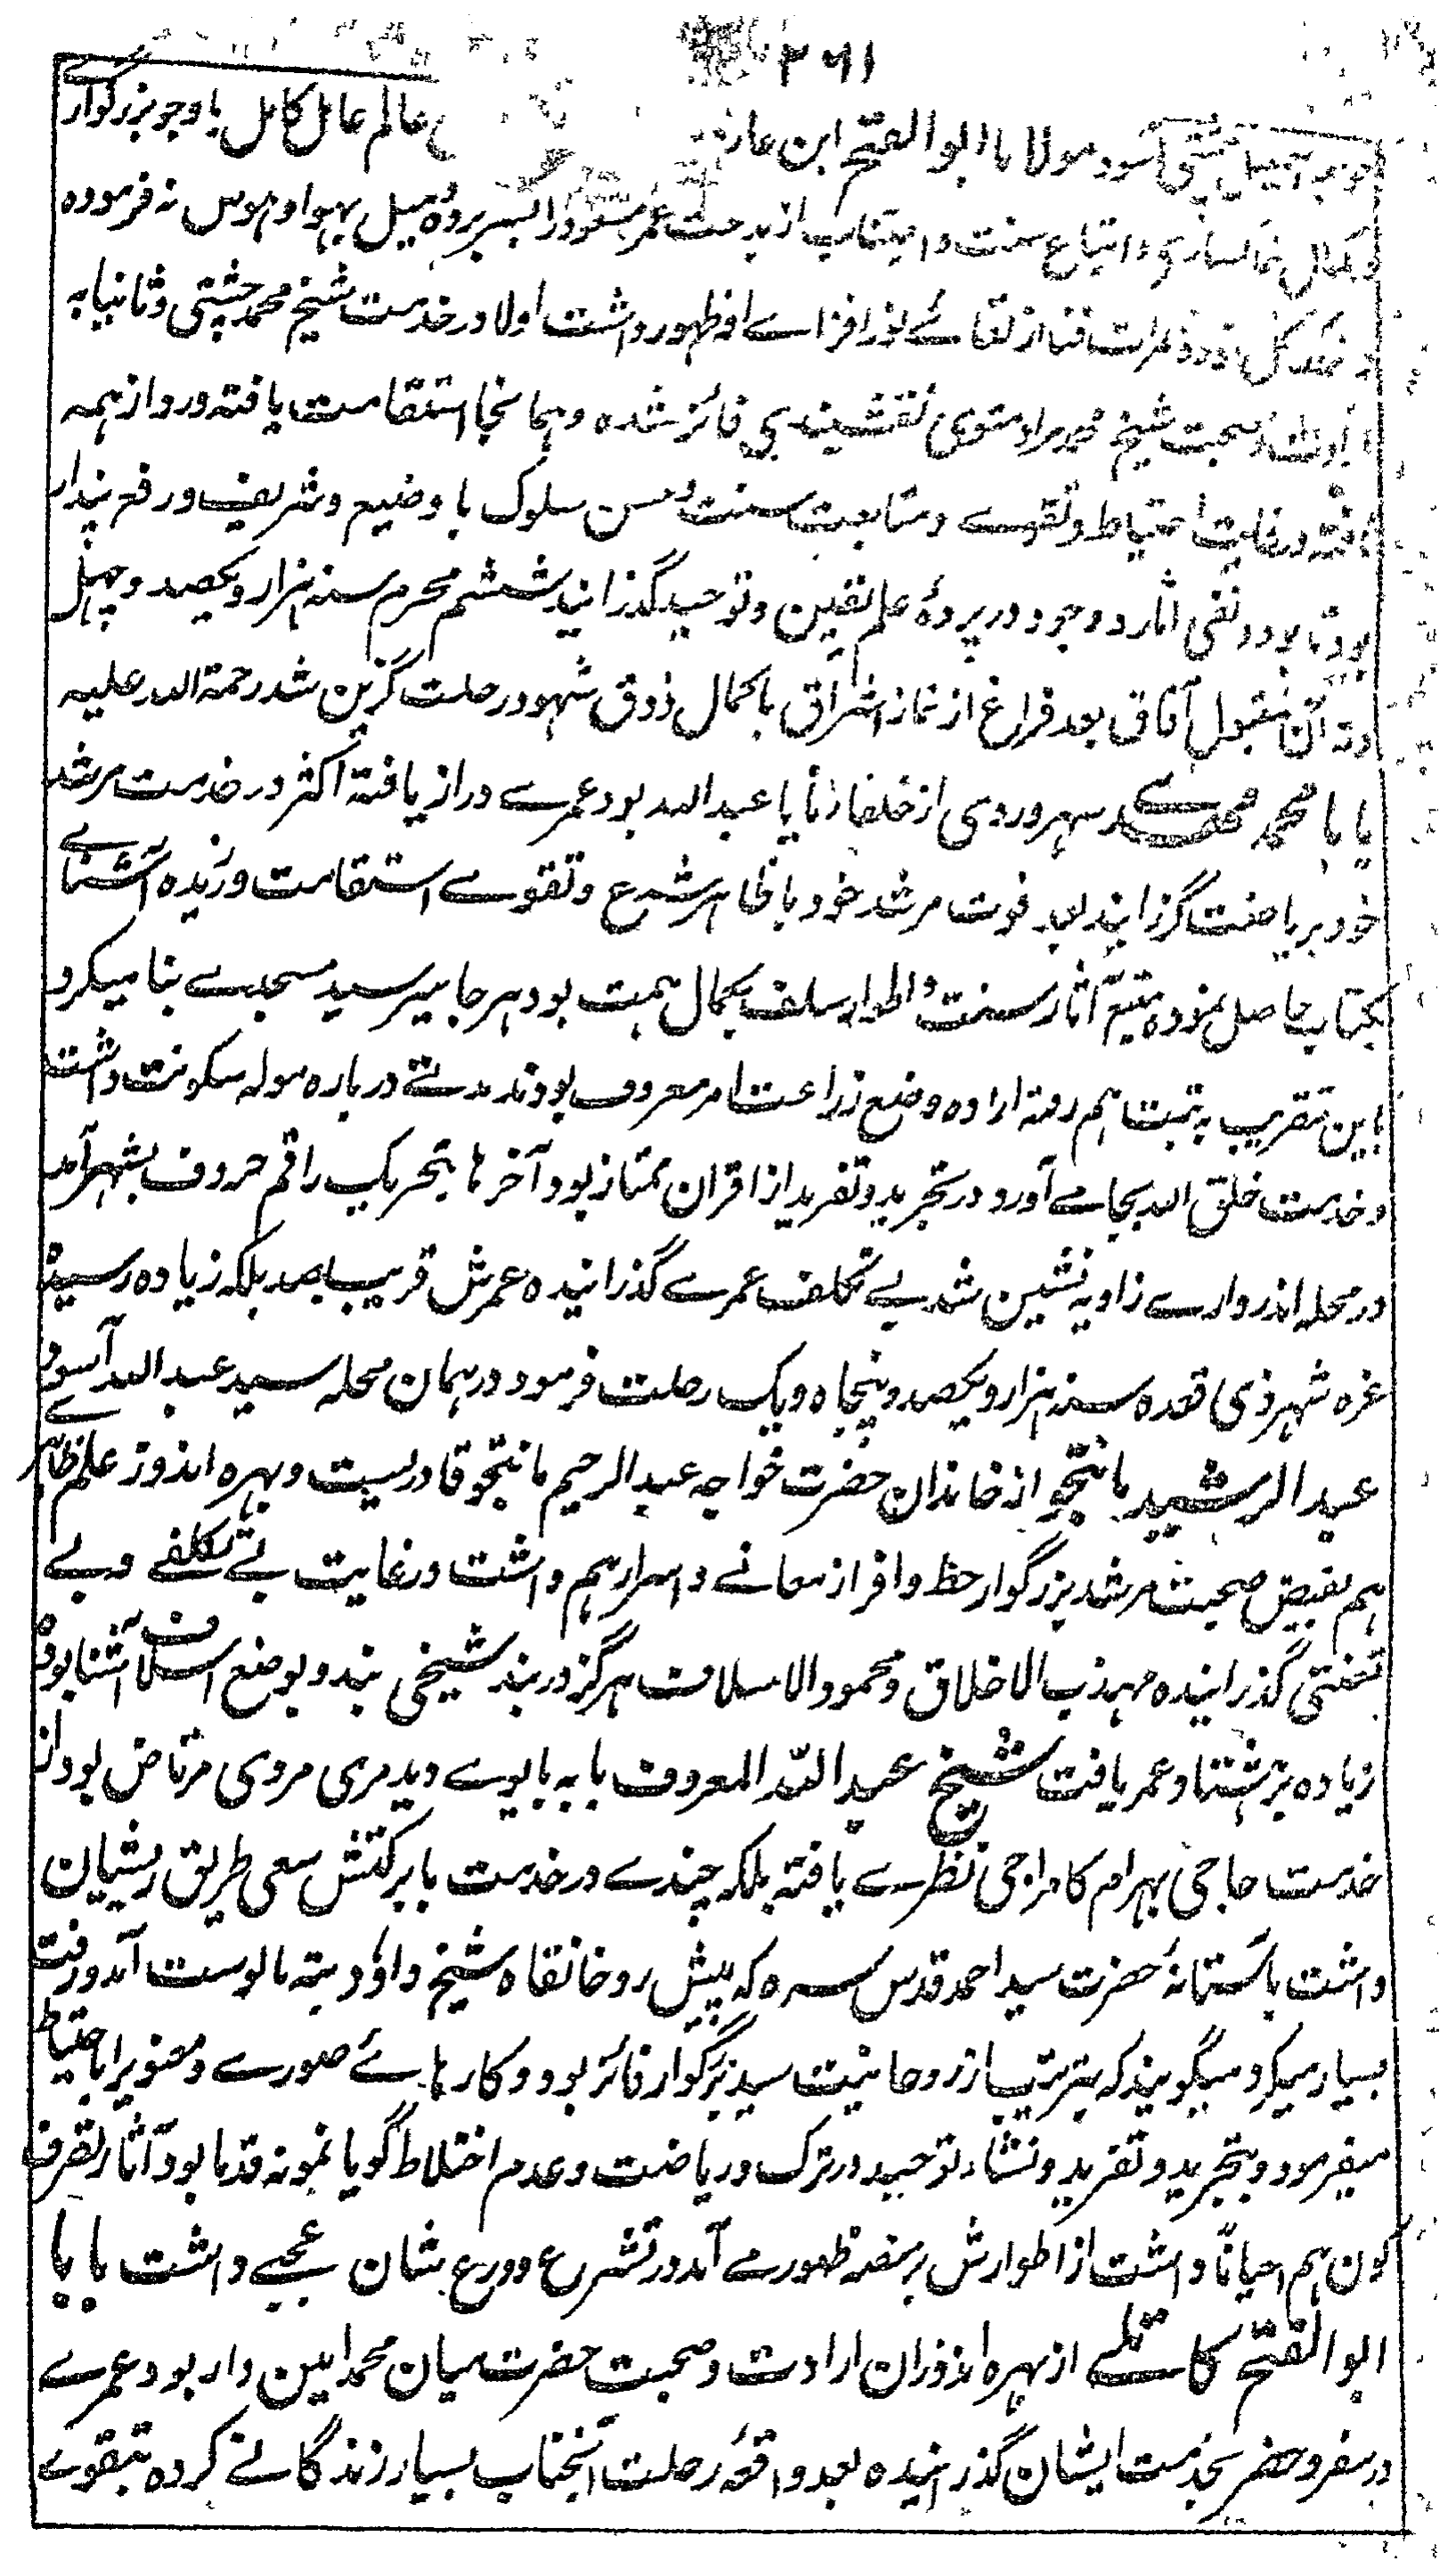 ۲۶۱
آسود مولانا ابوالفتح ابن عالم عامل کامل باوجود بزرگواری
و کمال خاکساری و اتباع سنت و اجتناب از بدعت عمر مسعود را بسر برده میل بهوا و هوس نه فرموده
لقائے نور افزاے او ظهور داشت اولا در خدمت شیخ محمد چشتی و ثانیا به
صحبت شیخ محمد مراد نقشبندی فائز شده و همانجا استقامت یافته و رو از همه
تافته در غایت احتیاط و تقوے و متابعت سنت و حسن سلوک با وضیع و شریف و رفع پندار
بود و نابود و نفی آثار وجود در پردهٔ علم یقین و توحید گذرانید ششم محرم سنه هزار و یکصد و چهل
آن مقبول آفاق بعد فراغ از نماز اشراق با کمال ذوق شهود رحلت گزین شد رحمة الله علیه
بابا محمد سهروردی از خلفاء بابا عبدالله بود عمرے دراز یافته اکثر در خدمت مرشد
خود بریاضت گزرانید بعد فوت مرشد خود با ظاهر شرع و تقوے استقامت ورزیده آشناے
بکتاب حاصل نموده متتبع آثار سنت و اطوار سلف بکمال همت بود هر جا میرسید مسجدے بنا میکرد
باین تقریب به تبت هم رفته اراده وضع زراعت امر معروف بودند مدتے در باره موله سکونت داشت
و خدمت خلق الله بجا مے آورد در تجرید و تفرید از اقران ممتاز بود آخرها بتحریک راقم حروف بشهر آمد
در محله اندرواری زاویه نشین شد بے تکلف عمرے گذرانیده عمرش قریب بصد بلکه زیاده رسیده
غره شهر ذی قعده سنه هزار و یکصد و پنجاه و یک رحلت فرمود در همان محله سید عبدالله آسود
عبد الرشید مانتجو از خاندان حضرت خواجه عبد الرحیم مانتجو قادریست و بهره اندوز علم ظاهرے
هم بفیض صحبت مرشد بزرگوار حظ وافر از معانے و اسرار هم داشت در غایت بے تکلفے و بے
تعینی گذرانیده مهذب الاخلاق و محمود الاسلاف هرگز در بند شیخی نبد و بوضع اسلاف آشنا بود
زیاده بر هشتاد عمر یافت شیخ عبد الله المعروف بابه بابوے دیدمری مروی مرتاض بود از
خدمت حاجی بهرام کامراجی نظرے یافته بلکه چندے در خدمت بابرکتش سعی طریق ریشیان
داشت باستانهٔ حضرت سید احمد قدس سره که پیش رو خانقاه شیخ داؤد بته مالوست آمد و رفت
بسیار میکرد و میگویند که بتربیت از روحانیت سید بزرگوار فائز بود و کارهائے صورے و معنوی را باحتیاط
میفرمود و بتجرید و تفرید و نشاء توحید در ترک و ریاضت و عدم اختلاط گویا نمونه قدما بود آثار تصرف
کون هم احیاناً داشت از اطوارش بر منصه ظهور مے آمد در تشرع و ورع بشان عجبے داشت بابا
ابو الفتح از بهره اندوزان ارادت و صحبت حضرت میان محمد امین دار بود عمرے
در سفر و حضر بخدمت ایشان گذرانیده بعد واقعهٔ رحلت آنجناب بسیار زندگانے کرده بتقوے